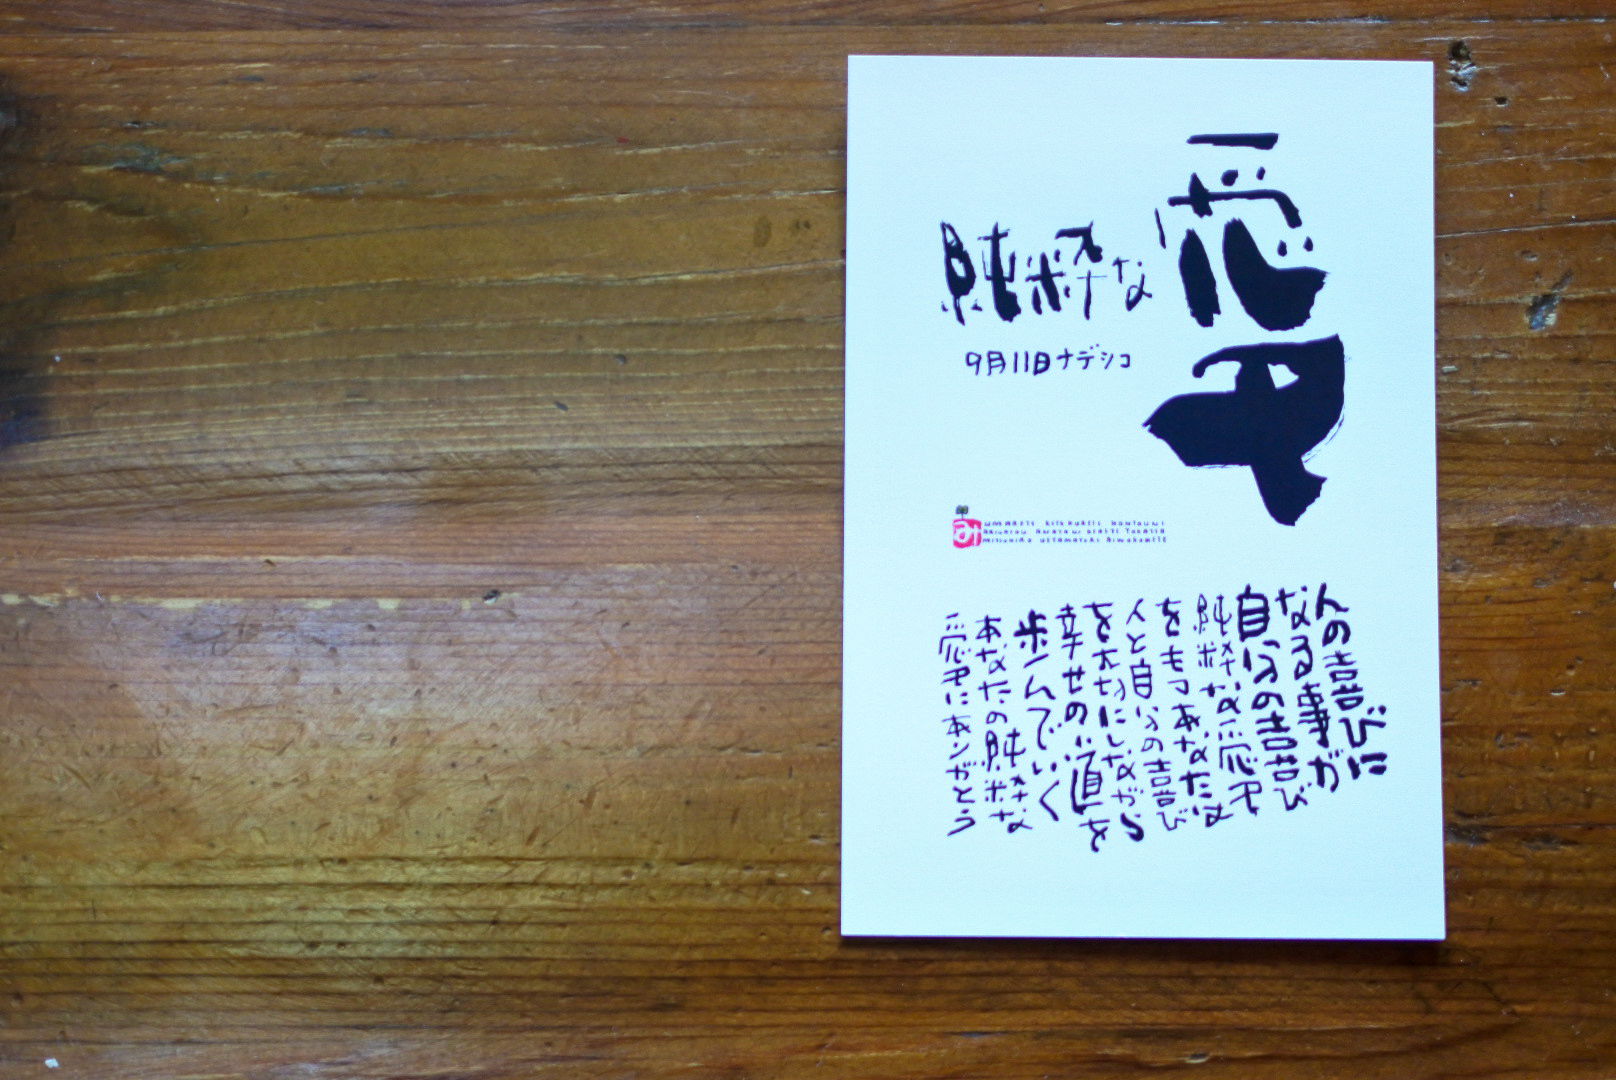 愛
純粋な
9月11日ナデシコ
み
人の喜びに
なる事が
自分の喜び
純粋な愛
をもつあなたは
人と自分の喜び
を大切にしながら
幸せの道を
歩んでいく
あなたの純粋な
愛にありがとう